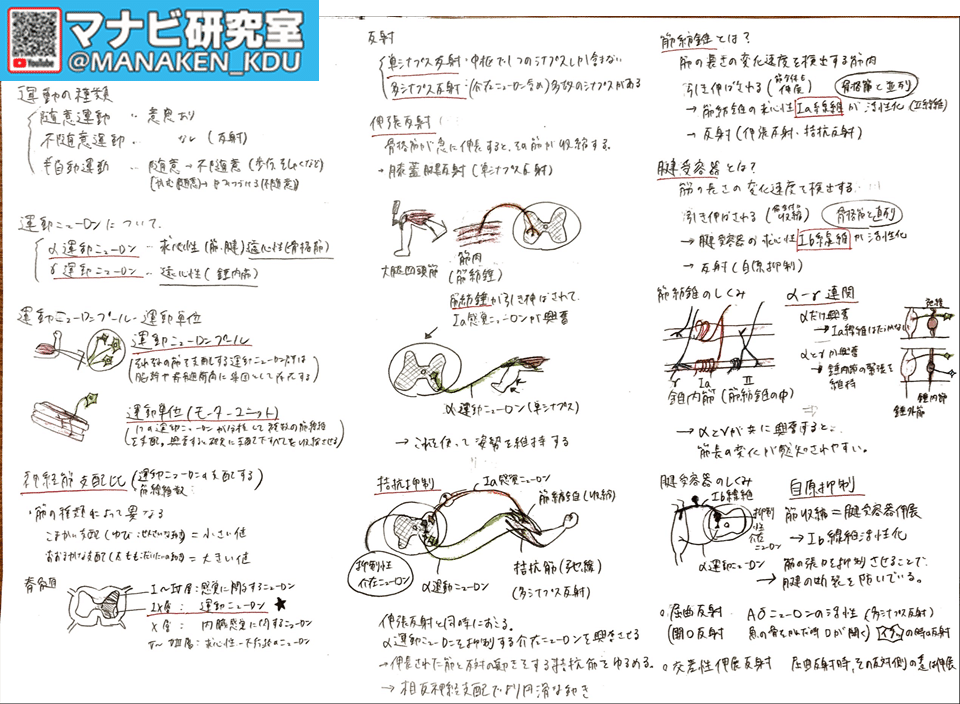 マナビ研究室
YouTube
@MANAKEN_KDU
運動の種類
随意運動 ‥ 意思あり
不随意運動 ‥ なし (反射)
半自動運動 ‥ 随意→不随意
運動ニューロンについて
α運動ニューロン ‥ 求心性 (筋、腱) 遠心性(骨格筋)
γ運動ニューロン ‥ 遠心性 (錘内筋)
運動ニューロンプール・運動単位
運動ニューロンプール
それぞれの筋を支配する運動ニューロン群は
脳幹や脊髄前角に集団として存在する
運動単位 (モーターユニット)
神経筋支配比 (運動ニューロンが支配する筋線維数)
・筋の種類によって異なる
= 小さい値
= 大きい値
脊髄
I〜VI層 : 感覚に関与するニューロン
IX層 : 運動ニューロン ★
X層 : 内臓感覚に関するニューロン
反射
単シナプス反射・中枢で1つのシナプスしか含ない
多シナプス反射・(介在ニューロン含め)多数のシナプスがある
伸張反射
骨格筋が急に伸長すると、その筋が収縮する。
→ 膝蓋腱反射 (単シナプス反射)
大腿四頭筋
筋肉
(筋紡錘)
筋紡錘が引き伸ばされて
Ia感覚ニューロンが興奮
α運動ニューロン (単シナプス)
→ これを使って姿勢を維持する
拮抗抑制
Ia感覚ニューロン
筋紡錘 (収縮)
抑制性
介在ニューロン
α運動ニューロン
拮抗筋 (弛緩)
(多シナプス反射)
伸張反射と同時におこる。
α運動ニューロンを抑制する介在ニューロンを興奮させる
→ 伸長された筋と反対の動きをする拮抗筋をゆるめる。
→ 相反神経支配でより円滑な動き
筋紡錘とは?
筋の長さの変化速度を検出する筋肉
引き伸ばされる (筋が伸展) 骨格筋と並列
→ 筋紡錘の求心性 Ia線維が活性化
→ 反射 (伸張反射、拮抗反射)
腱受容器とは?
筋の長さの変化速度で検出する
引き伸ばされる (筋が収縮) 骨格筋と直列
→ 腱受容器の求心性 Ib線維が活性化
→ 反射 (自原抑制)
筋紡錘のしくみ
γ Ia II
錘内筋 (筋紡錘の中)
α-γ連関
αだけ興奮
→ Ia線維はたるめない
αとγが興奮
→ 錘内筋の緊張を維持
弛緩
錘内筋
錘外筋
→ αとγが共に興奮すると、
筋長の変化が感知されやすい。
腱受容器のしくみ
Ib線維
抑制性介在ニューロン
α運動ニューロン
自原抑制
筋収縮 = 腱受容器伸展
→ Ib線維活性化
→ 筋の張力を抑制させることで、
腱の断裂を防いでいる。
○屈曲反射 Aδニューロンの活性 (多シナプス反射)
(開口反射)
○交差性伸展反射 屈曲反射時、その反対側の足は伸展